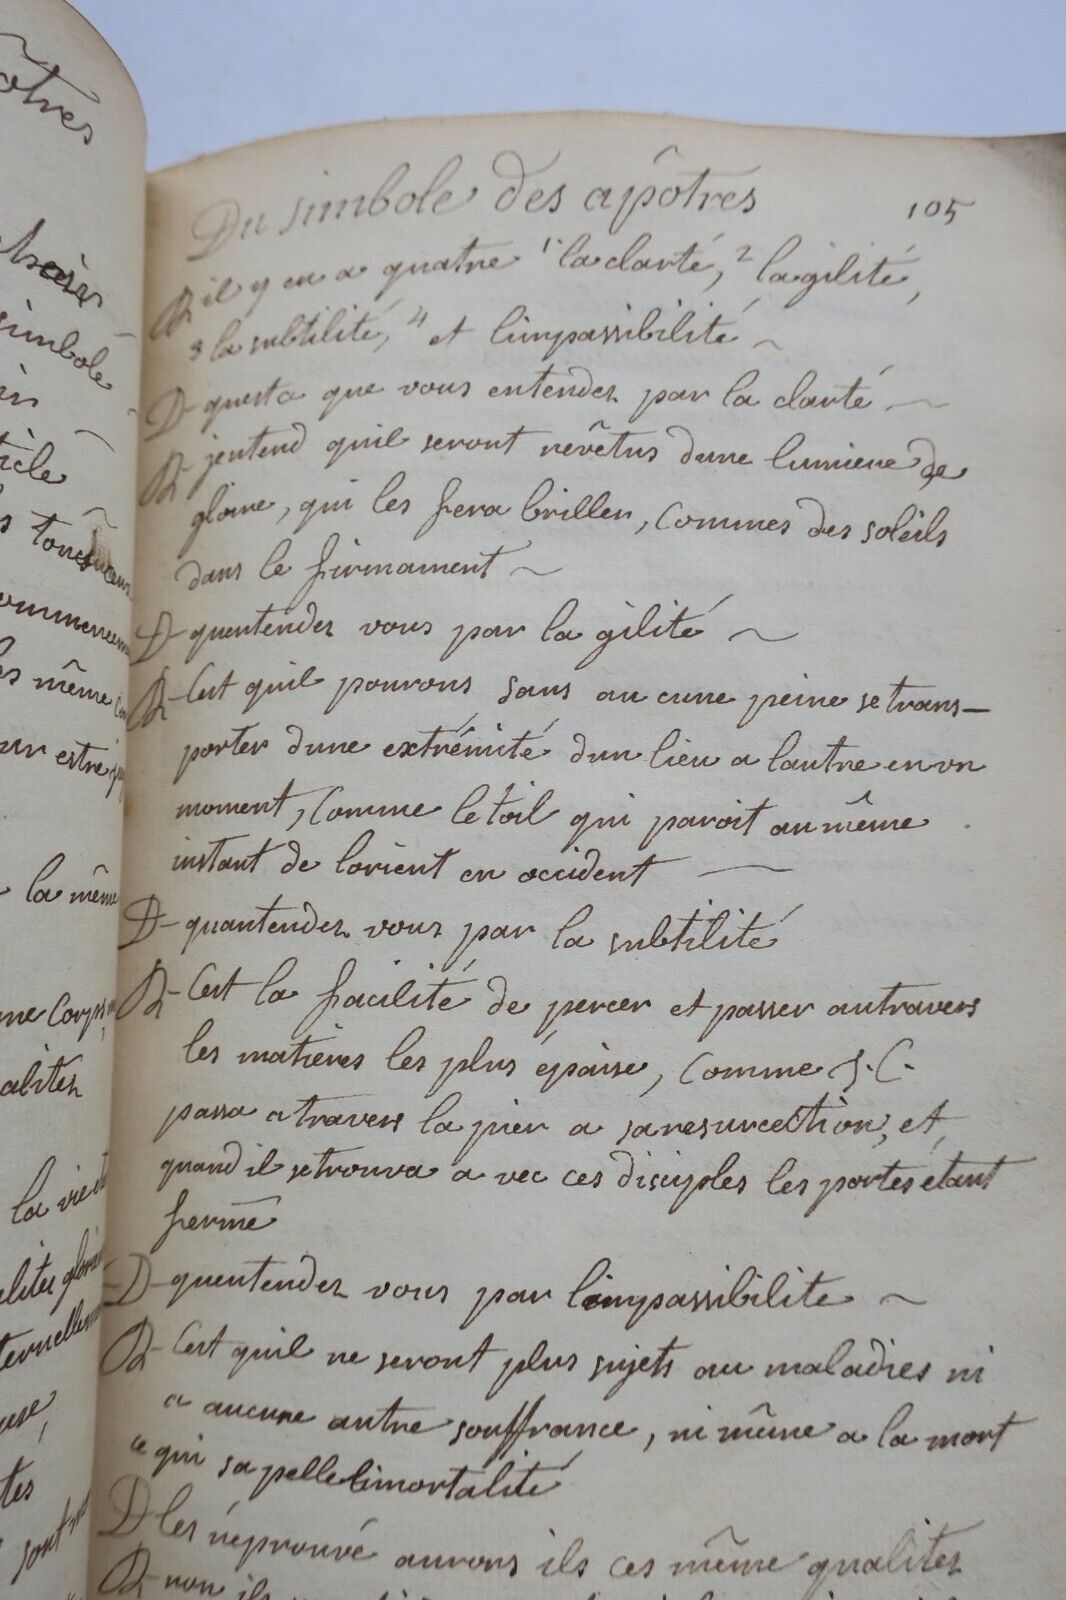 otres
simbole
ticle
même
la même
me Corps
alitez
la vie
ternellem
tes
sont
Du simbole des apôtres 105
R il y en a quatre 1 la clarté, 2 la gilité,
3 la subtilité, 4 et limpassibilité
D questce que vous entendez par la clarté
R jentend quil seront revêtus dune lumiere de
gloire, qui les fera briller, commes des soleils
dans le firmament
D quentendez vous par la gilité
R Cest quil pourons sans au cune peine se trans-
porter dune extrémité dun lieu a lautre en un
moment, Comme letoil qui paroit au même
instant de lorient en occident
D quantendez vous par la subtilité
R Cest la facilité de percer et passer autravers
les matieres les plus épaisse, Comme J. C.
passa a travers la pier a saresurcection, et,
quand il setrouva a vec ces disciples les portes étant
fermé
D quentendez vous par limpassibilite
R Cest quil ne seront plus sujets au maladies ni
a aucune autre souffrance, ni même a la mort
ce qui sa pelle limortalité
D les réprouvé aurons ils ces même qualitez
R non ils